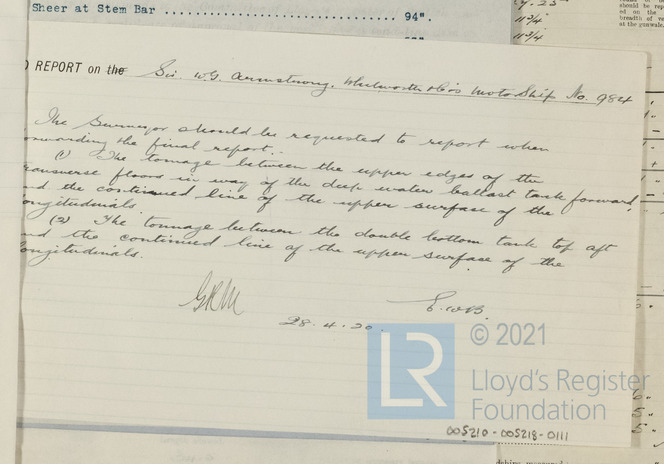 Sheer at Stem Bar .................................. 94".
REPORT on the Sir W.G. Armstrong, Whitworth & Co's Motor Ship No. 984
The Surveyor should be requested to report when
forwarding the final report:-
(1) The tonnage between the upper edges of the
transverse floors in way of the deep water ballast tank forward,
and the continued line of the upper surface of the
longitudinals.
(2) The tonnage between the double bottom tank top aft
and the continued line of the upper surface of the
longitudinals.
GRM
E.W.B.
28.4.20.
LR
© 2021
Lloyd's Register
Foundation
005210-005218-0111
should be rep
ed on the
breadth of ve
at the gunwale.
11 3/4
11 3/4